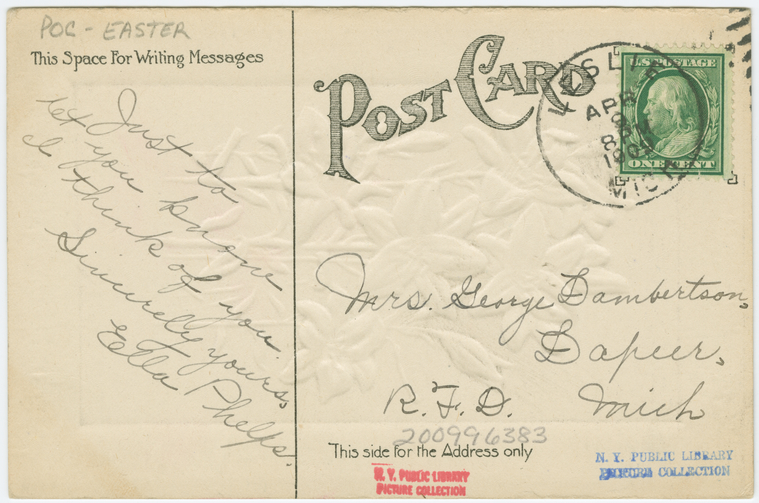 POC - EASTER
This Space For Writing Messages
Just to
let you know
I think of you.
Sincerely yours,
Etta Phelps.
POST CARD
APR
8 AM
MICH
U.S. POSTAGE
ONE CENT
Mrs. George Lambertson,
Lapeer,
R.F.D. Mich
200996383
This side for the Address only
N. Y. PUBLIC LIBRARY
PICTURE COLLECTION
N. Y. PUBLIC LIBRARY
PICTURE COLLECTION